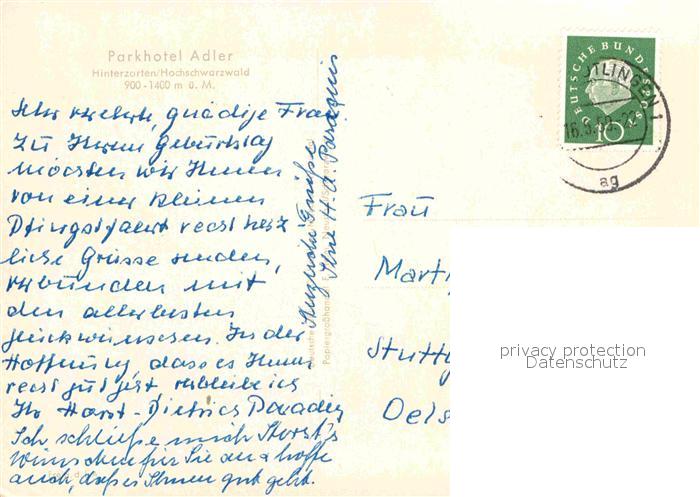 Parkhotel Adler
Hinterzarten/Hochschwarzwald
900-1400 m ü. M.
Sehr verehrte, gnädige Frau
Zu Ihrem Geburtstag
möchten wir Ihnen
von einer kleinen
Pfingstfahrt recht herz
liche Grüsse senden,
verbunden mit
den allerbesten
Glückwünschen. In der
Hoffnung, dass es Ihnen
recht gut geht verbleibe ich
Ihr Horst-Dietrich
Ich schließe mich Horst's
Wünschen für Sie an & hoffe
auch, daß es Ihnen gut geht.
Herzliche Grüße
Ihre H. A.
Papiergroßhandel
DEUTSCHE BUNDESPOST
10
TLINGEN 1
ag
Frau
Marti
Stuttg
privacy protection
Datenschutz